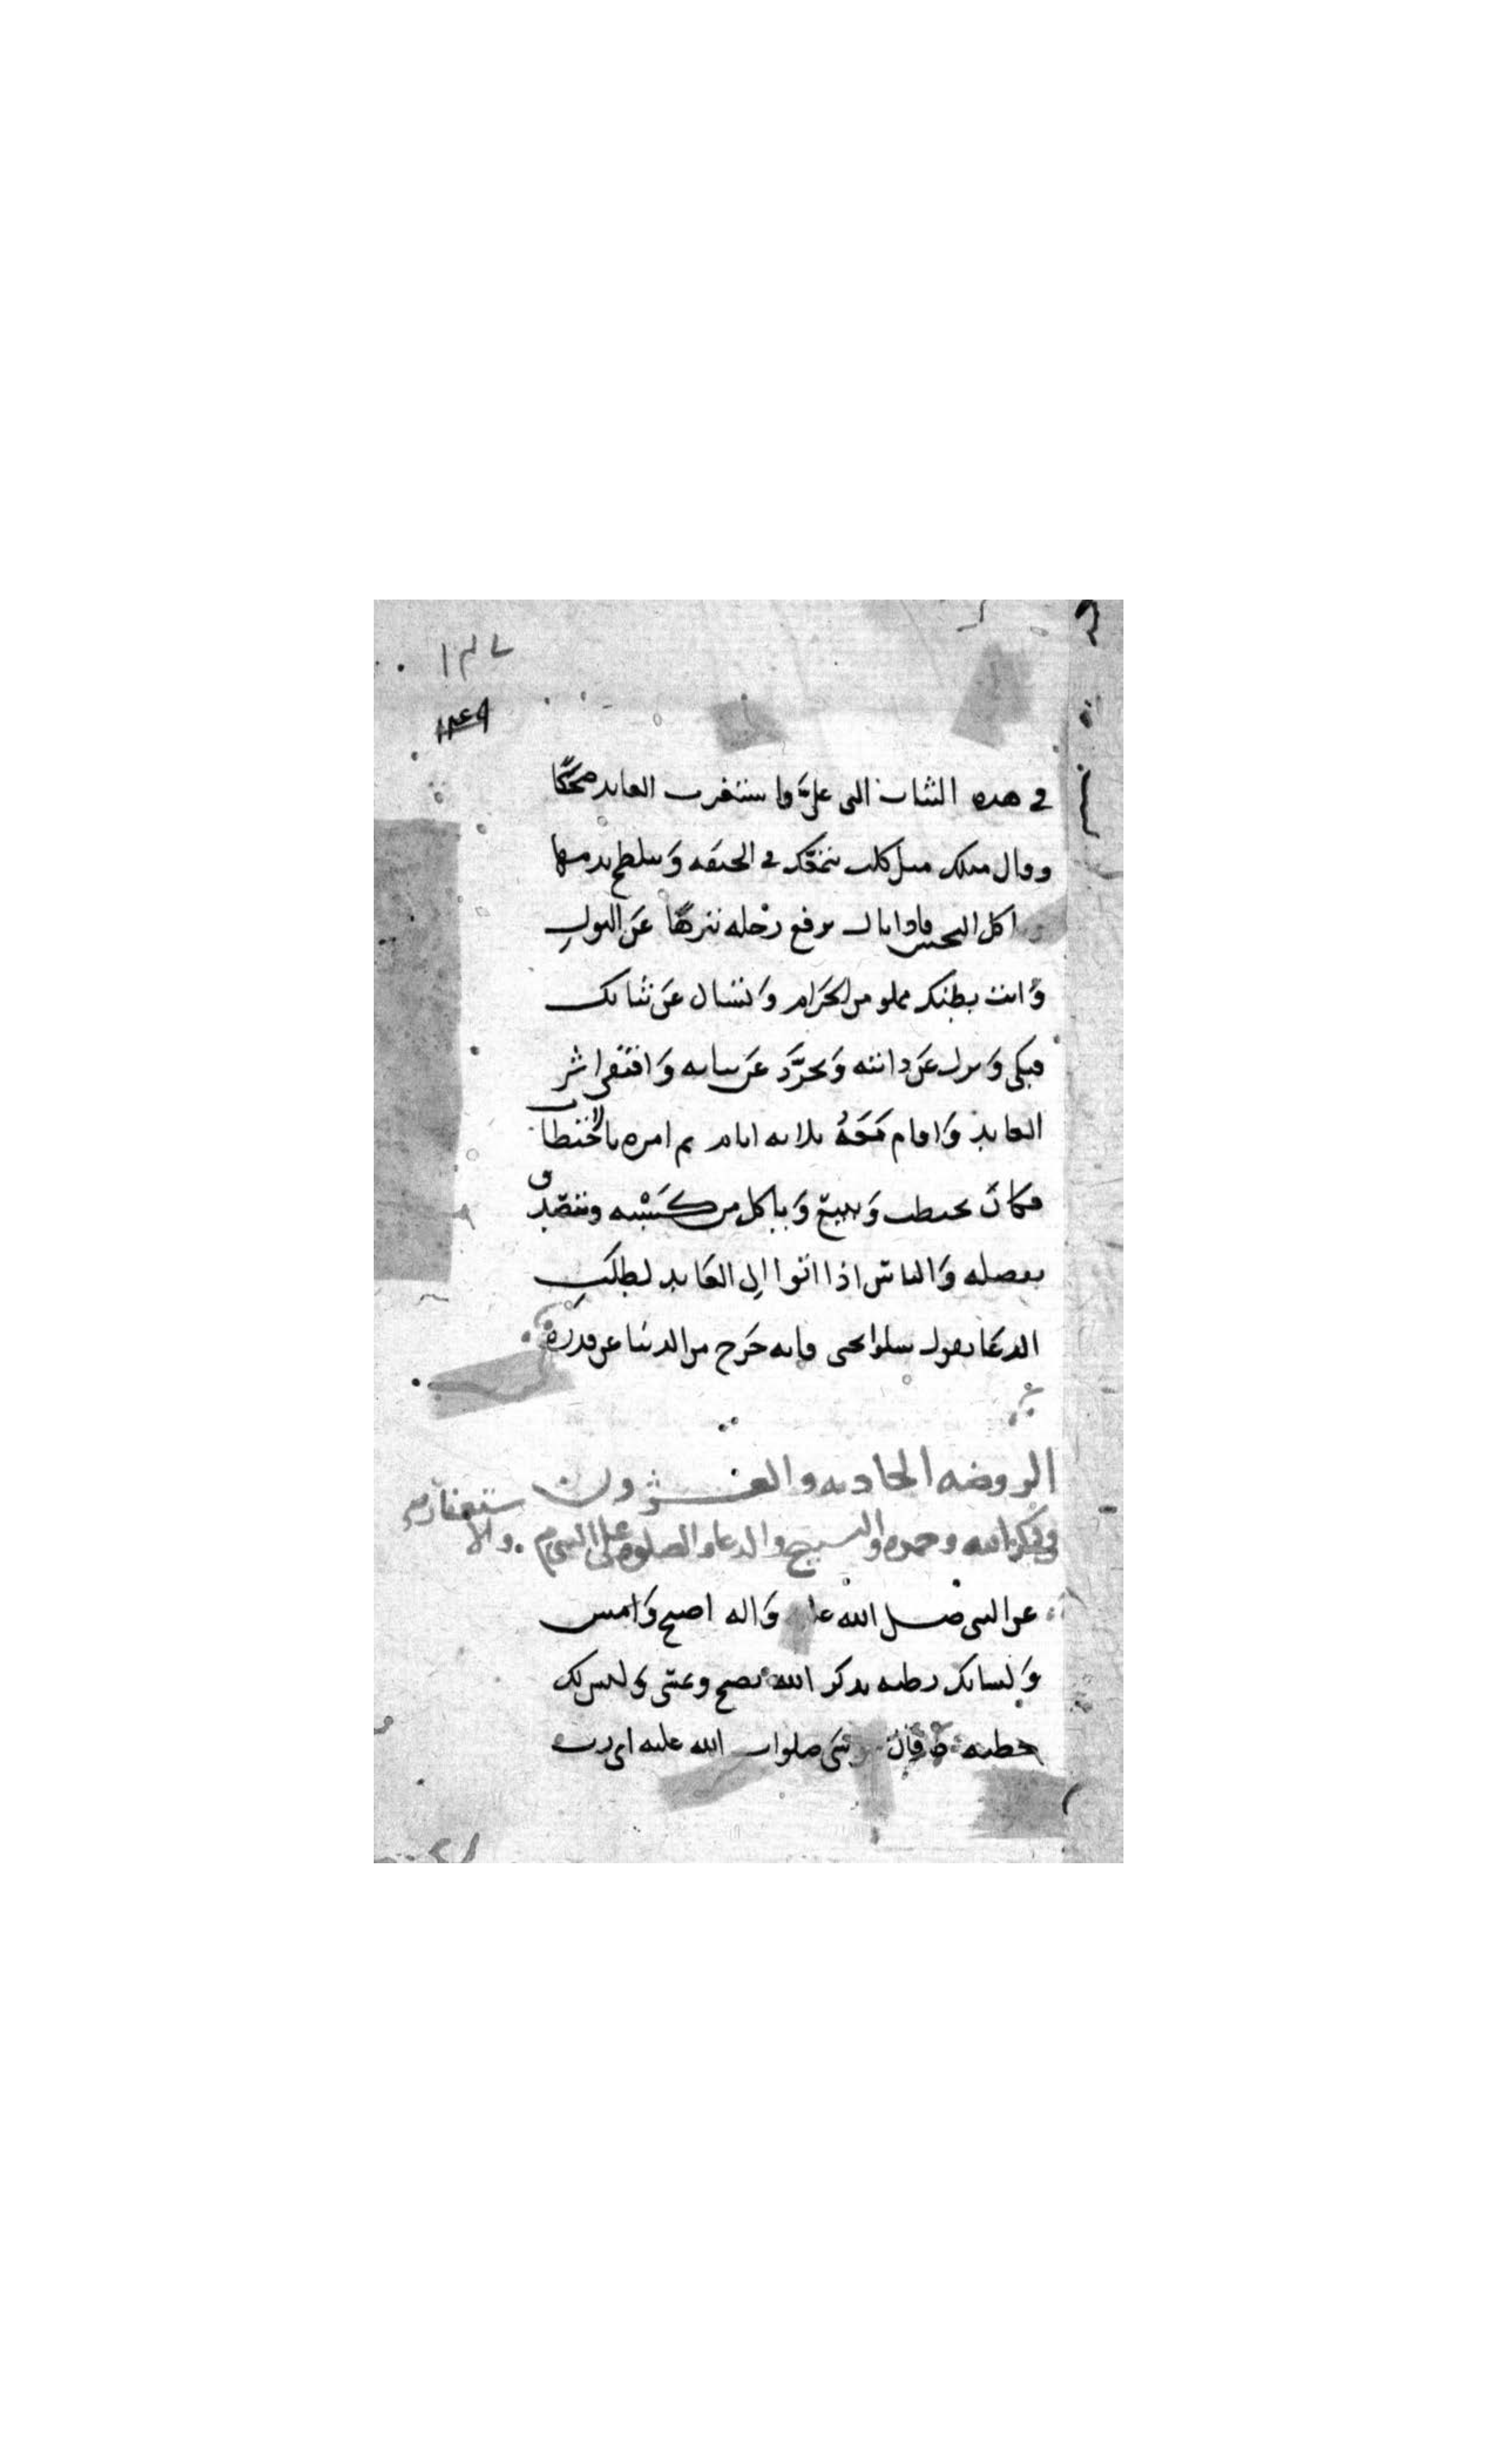 ١٣٧
١٣٤٩
في هذه الثياب التي عليّ واستغرب العابد ضحكا
وقال مثلك مثل كلب يتمعّك في الجيفه ويتلطخ بدمها
واكل النجس فاذا بال يرفع رجله تنزها عن البول
وانت بطنك مملو من الحرام وتسال عن ثيابك
فبكى ونزل عن دابته وتجرّد عن ثيابه واقتفى اثر
العابد واقام معه ثلاثه ايام ثم امره بالاختطاب
فكان يحتطب ويبيع وياكل من كسبه ويتصدّق
بفضله والناس اذا اتوا الى العابد لطلب
الدعا يقول سلوا يحيى فانه خرج من الدنيا عن قدره
الروضه الحاديه والعشرون
في ذكر الله وحمده والتسبيح والدعا والصلوه على النبي م . والاستغفار
عن النبي صلى الله عليه واله اصبح وامس
ولسانك رطبه بذكر الله تصبح وتمسى وليس لك
خطيه قال موسى صلوات الله عليه اى رب